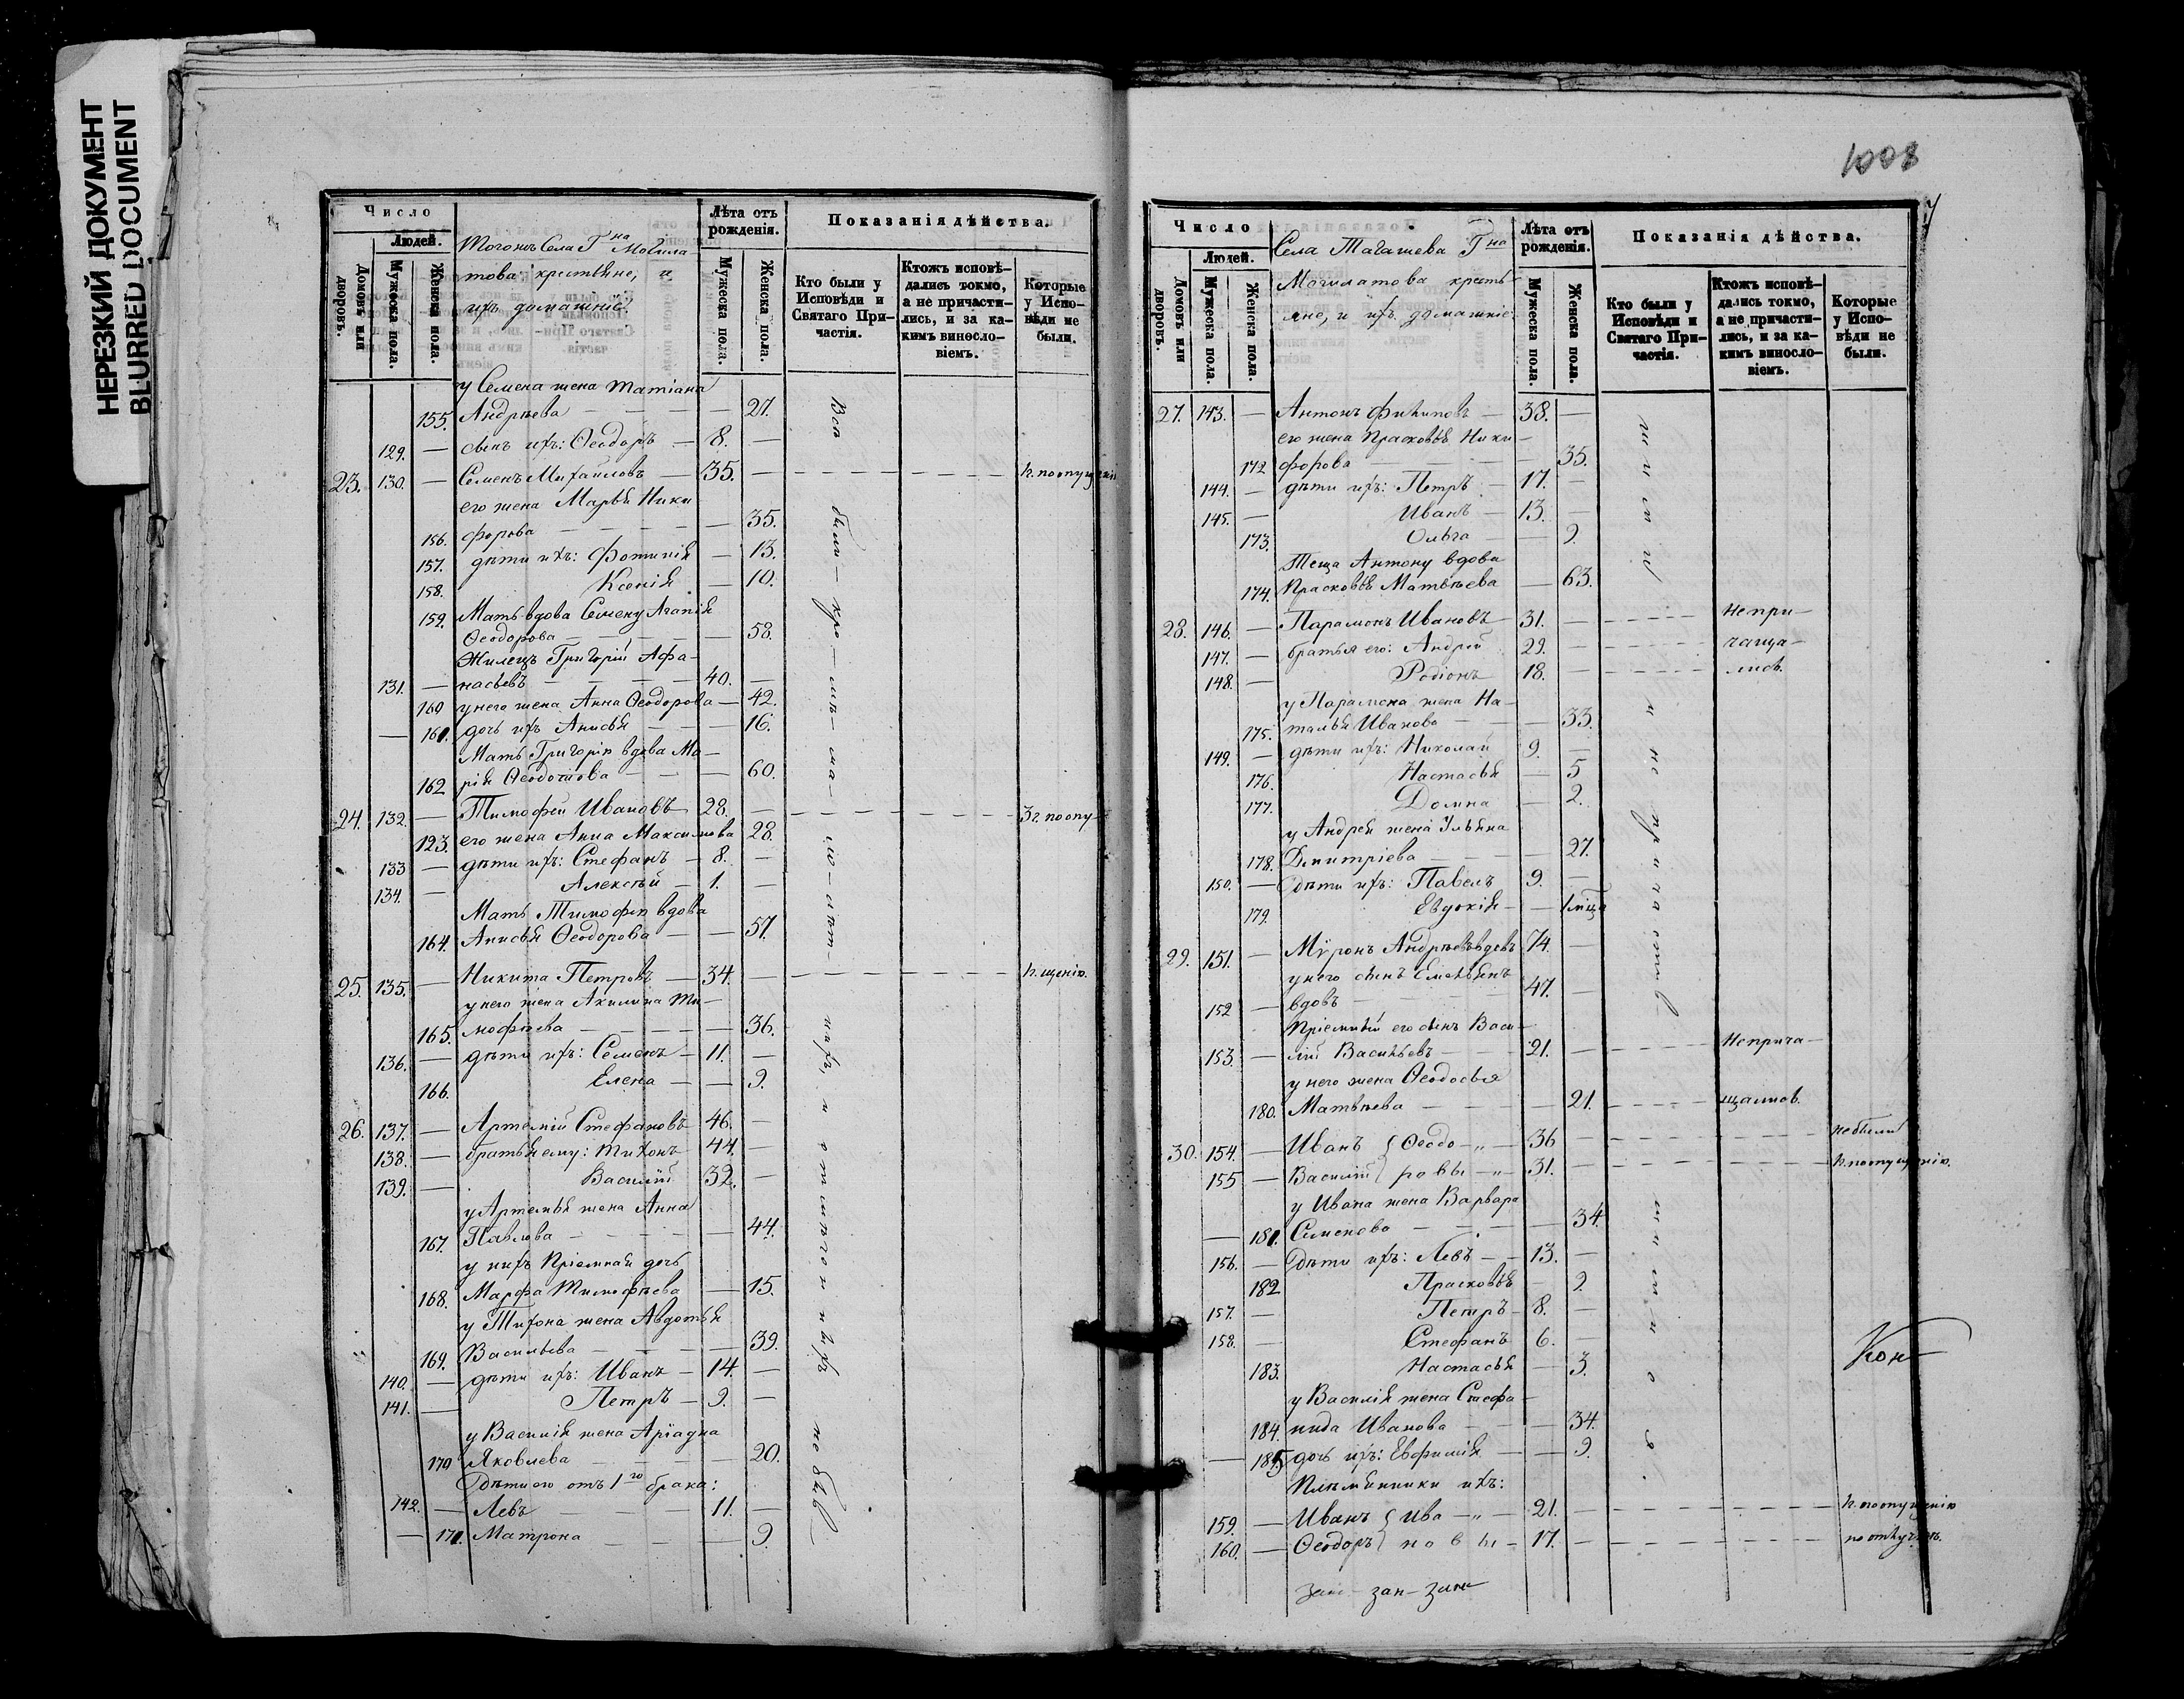 НЕРЕЗКИЙ ДОКУМЕНТ
BLURRED DOCUMENT
Число
Людей.
Домовъ или дворовъ.
Мужеска пола.
Женска пола.
Тогожъ Села Гна Могила-
това крестьяне, и
ихъ домашніе.
Лѣта отъ рожденія.
Мужеска пола.
Женска пола.
Показанія дѣйства.
Кто были у Исповѣди и Святаго При-частія.
Ктожъ исповѣ-дались токмо, а не причасти-лись, и за ка-кимъ винosло-віемъ.
Которые у Испо-вѣди не были.
у Семена жена Татіана
155. Андрѣева — 27.
129. — сынъ ихъ: Ѳеодоръ — 8. —
23. 130. — Семенъ Михайловъ — 35. — н. по опущенію
его жена Марья Ники
156. форова — 35.
157. дѣти ихъ: Фотинія — 13.
158. Ксенія — 10.
159. Мать вдова Семену Агапія
Ѳеодорова — 58.
Жилецъ Григорій Афа-
131. — насьевъ — 40. —
160 у него жена Анна Ѳеодорова — 42.
— 161. дочь ихъ Анисья — 16.
Мать Григорія вдова Ма-
162 рія Ѳеодотова — 60.
24. 132. — Тимофей Ивановъ — 28. — 3 г. по опу-
123. его жена Анна Максимова 28.
133 — дѣти ихъ: Стефанъ — 8. —
134. — Алексѣй — 1. —
Мать Тимофея вдова
164. Анисья Ѳеодорова — 57.
25. 135. — Никита Петровъ — 34. — н. щенію.
у него жена Акилина Ти-
165. мофѣева — 36.
136. — дѣти ихъ: Семенъ — 11. —
166. Елена — 9.
26. 137. — Артемій Стефановъ 46. —
138. — братья ему: Тихонъ 44. —
139. — Василій 32. —
у Артемья жена Анна
167. Павлова — 44.
у нихъ пріемная дочь
168. Марфа Тимофѣева — 15.
у Тихона жена Авдотья
169. Васильева — 39.
140. — дѣти ихъ: Иванъ — 14. —
141. — Петръ — 9. —
у Василія жена Аріадна
170 Яковлева — 20.
Дѣти его отъ 1го брака:
142. — Левъ — 11. —
— 171. Матрона — 9.
Всѣ были
1008
7
Число
Людей.
Домовъ или дворовъ.
Мужеска пола.
Женска пола.
Села Тагашева Гна
Могилатова кресть-
яне, и ихъ домашніе
Лѣта отъ рожденія.
Мужеска пола.
Женска пола.
Показанія дѣйства.
Кто были у Исповѣди и Святаго При-частія.
Ктожъ исповѣ-дались токмо, а не причасти-лись, и за ка-кимъ винosло-віемъ.
Которые у Испо-вѣди не были.
27. 143. — Антонъ Филиповъ — 38. —
его жена Прасковья Ники-
172 форова — 35.
144. — дѣти ихъ: Петръ — 17. —
145. — Иванъ — 13. —
173. Ольга — 9.
Теща Антону вдова
174. Прасковья Матвѣева — 63.
28. 146. — Парамонъ Ивановъ — 31. — не при-
147. — братья его: Андрей 29. — чаща-
148. — Родіонъ 18. — лись.
у Парамона жена На-
175. талья Иванова — 33.
149. — дѣти ихъ: Николай 9. —
176. Настасья — 5
177. Домна — 2.
у Андрея жена Ульяна
178. Дмитріева — 27.
150. — Дѣти ихъ: Павелъ 9. —
179. Евдокія — 1 мѣца
29. 151. — Мѵронъ Андрѣевъ вдовъ 74. —
у него сынъ Емельянъ
152 — вдовъ — 47. —
Пріемный его сынъ Васи-
153. — лій Васильевъ — 21. — не прича-
у него жена Ѳеодосья
180. Матвѣева — 21. — щались.
30. 154. — Иванъ } Ѳеодо-„— 36 — не были
155 — Василій } ровы -„- 31. — н. по опущенію.
у Ивана жена Варвара
— 181. Семенова — 34.
156. — Дѣти ихъ: Левъ — 13. —
182 Прасковья — 9
157. — Петръ — 8. —
158. — Стефанъ 6. —
183. Настасья — 3.
у Василія жена Стефа-
184. нида Иванова — 34.
— 185 дочь ихъ: Евфимія — 9.
Племянники ихъ:
159. — Иванъ } Ива-„— 21. — н. по опущенію
160. — Ѳеодоръ } новы — 17. — по отлуч.
Кон-